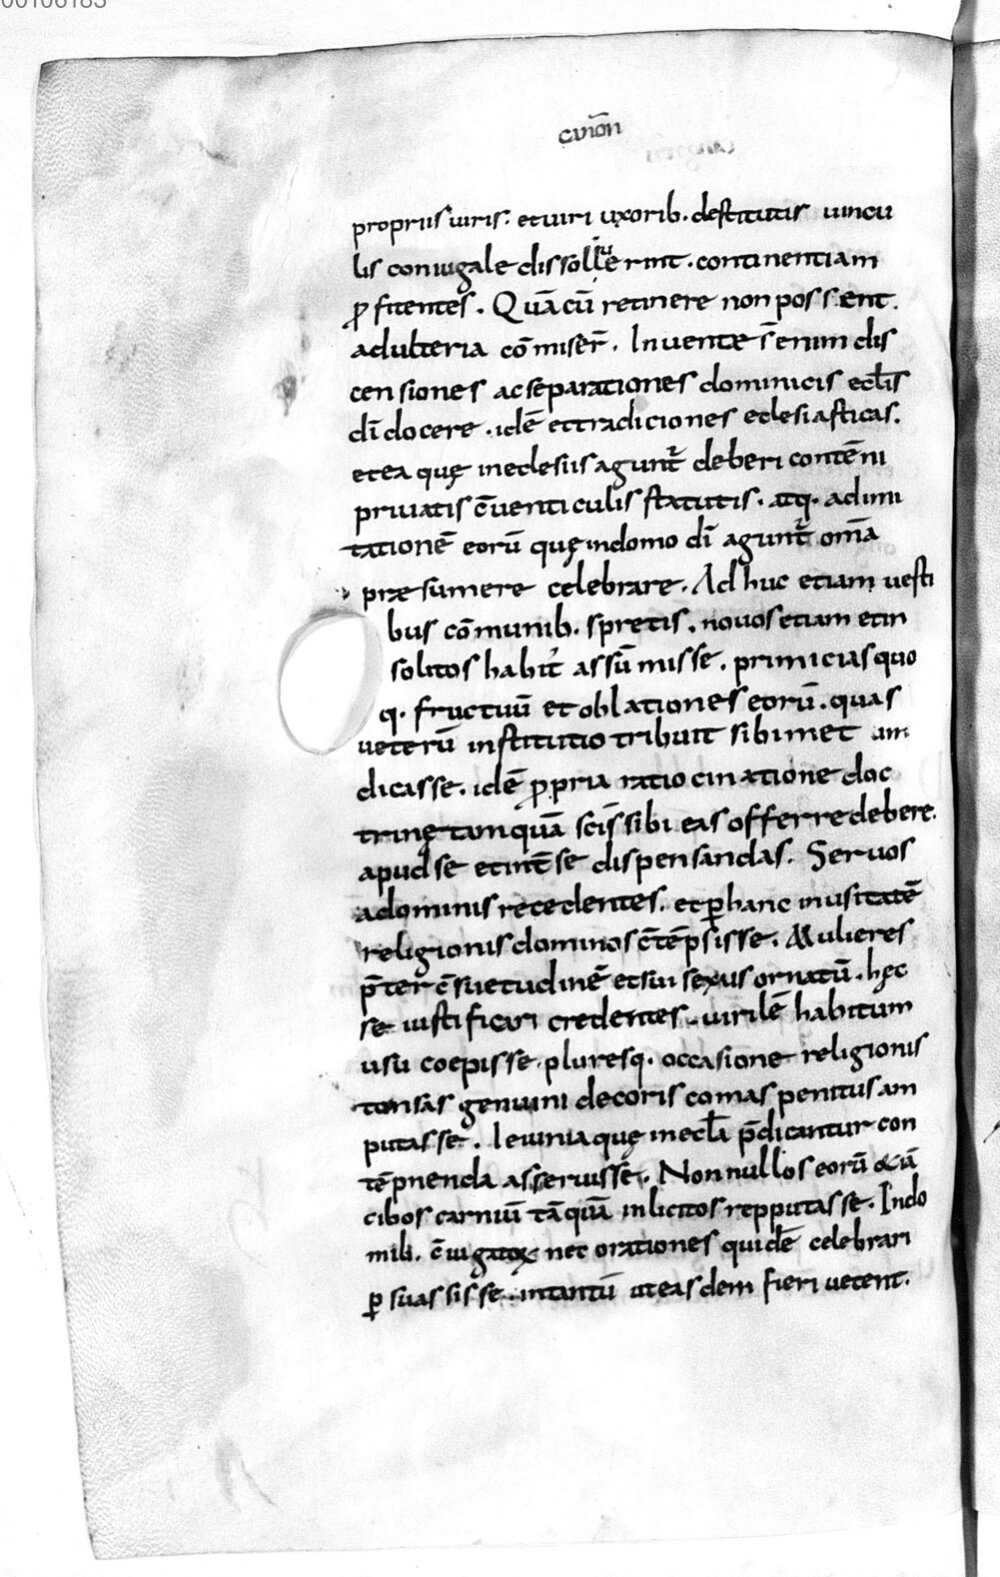 00106183
canōn
propriis uiris. et uiri uxorib. destitutis uincu
lis coniugale dissolluerint. continentiam
ꝓfitentes. Quā cū retinere non possent.
adulteria cōmiser̄. Inuentæ s̄ enim dis
censiones ac separationes dominicis ecl̄is
dī docere. idē et tradiciones eclesiasticas.
et ea quę in eclesiis agunt̄ deberi contēni
priuatis c̄uenticulis statutis. atq. adimi
tationē eorū quę in domo dī agunt̄ om̄a
præsumere celebrare. Ad huc etiam uesti
bus cōmunib. spretis. nouos etiam et in
solitos habit̾ assūmisse. primicias quo
q. fructuū et oblationes eorū. quas
ueterū institutio tribuit sibimet uin
dicasse. idē ꝓpria ratiocinatione doc
trinę tamquā sc̄is sibi eas offerre debere.
apud se et int̄ se dispensandas. Seruos
a dominis recedentes. et ꝑ hanc inusitatē
religionis dominos c̄tēpsisse. Mulieres
p̄ter c̄suetudinē et sui sexus ornatū. hęc
se iustificari credentes. uirilē habitum
usu coepisse. pluresq. occasione religionis
tonsas genuini decoris comas penitus am
putasse. Ieiunia quę in ecl̄a p̄dicantur con
tēpnenda asseruisse. Nonnullos eorū &iā
cibos carniū tāquā inlicitos repputasse. In do
mili. c̄iugatoꝝ nec orationes quidē celebrari
ꝑsuassisse. in tantū ut easdem fieri uetent.